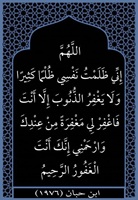 اللَّهُمَّ
إِنِّي ظَلَمْتُ نَفْسِي ظُلْمًا كَثِيرًا
وَلَا يَغْفِرُ الذُّنُوبَ إِلَّا أَنْتَ
فَاغْفِرْ لِي مَغْفِرَةً مِنْ عِنْدِكَ
وَارْحَمْنِي إِنَّكَ أَنْتَ
الْغَفُورُ الرَّحِيمُ
ابن حبان (١٩٧٦)